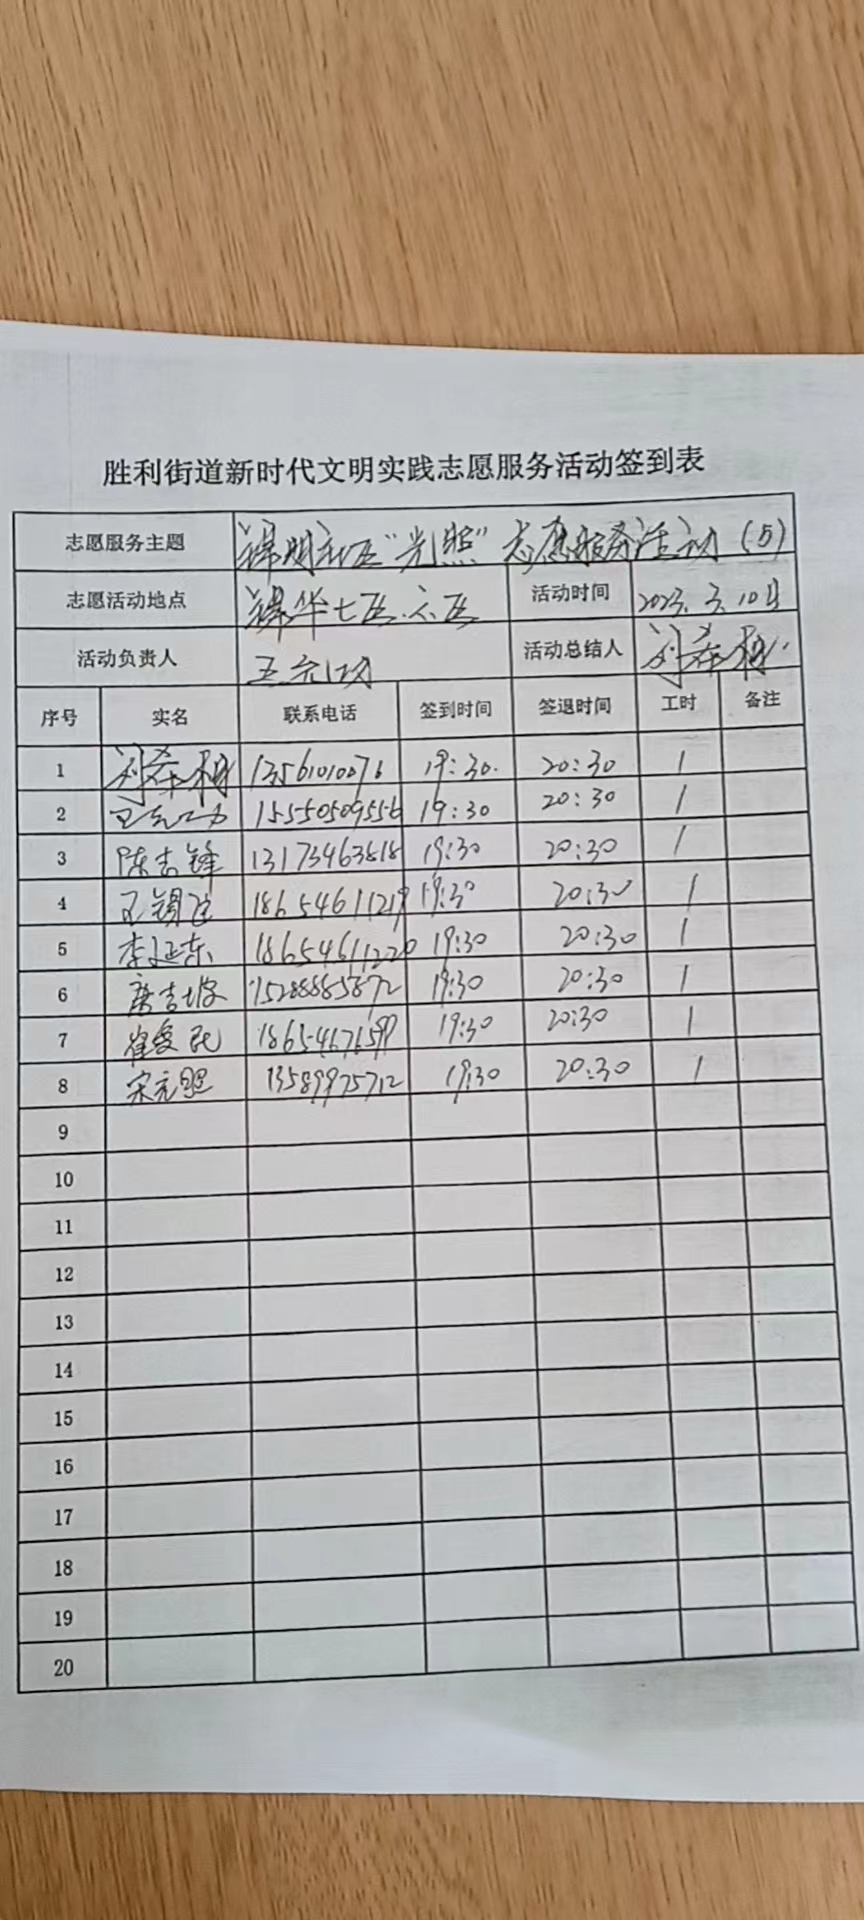 胜利街道新时代文明实践志愿服务活动签到表
志愿服务主题 锦明社区“光照”志愿服务活动(5)
志愿活动地点 锦华七区.六区 活动时间 2023.3.10日
活动负责人 王克功 活动总结人
序号 实名 联系电话 签到时间 签退时间 工时 备注
1 13561010076 19:30. 20:30 1
2 王克功 15550509556 19:30 20:30 1
3 陈吉锋 13173463818 19:30 20:30 1
4 18654611219 19:30 20:30 1
5 李延东 18654611220 19:30 20:30 1
6 唐吉坡 15288885872 19:30 20:30 1
7 崔爱民 19:30 20:30 1
8 宋元照 13589975712 19:30 20:30 1
9
10
11
12
13
14
15
16
17
18
19
20